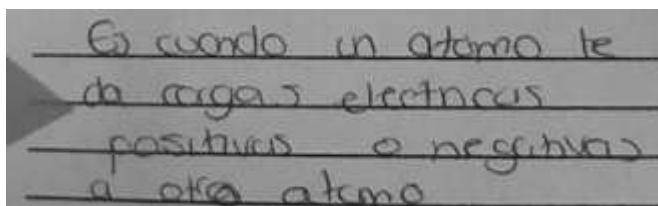 Es cuando un atomo le
da cargas electricas
positivas o negativas
a otro atomo